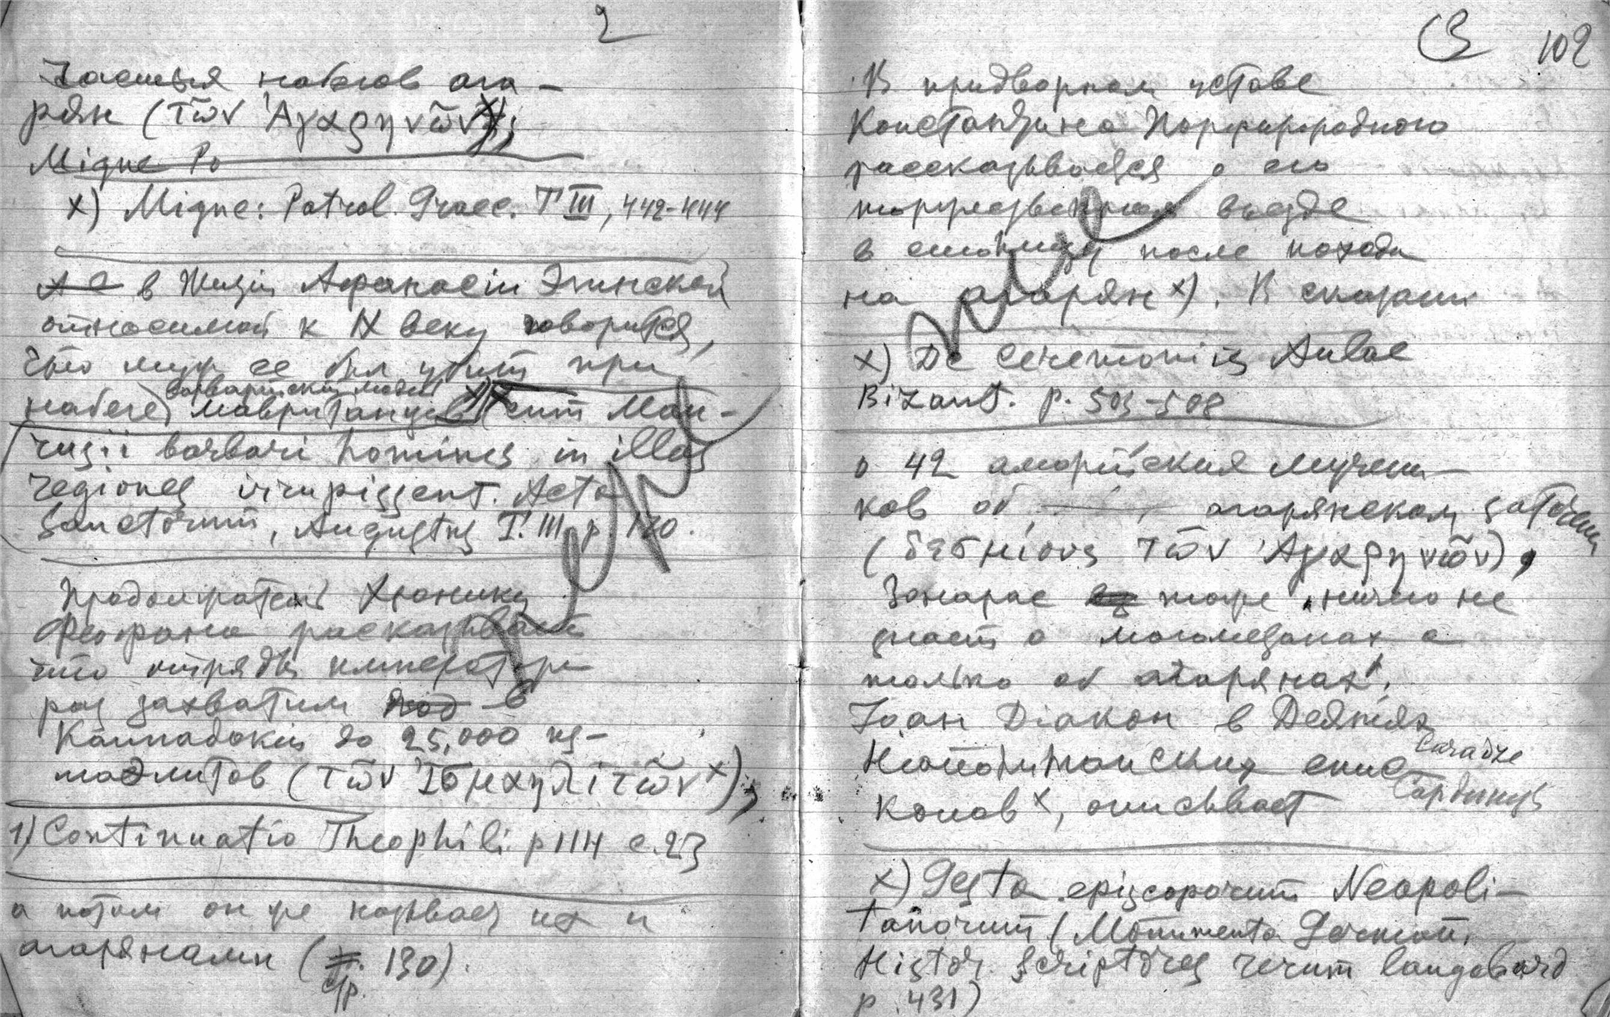 2
частыя набегов ага-
рян (τῶν Ἀγαρηνῶν x);
Migne Po
x) Migne: Patrol. Graec. T III, 442-444
в Житіи Афанасіи Эгинской
относимой к IX веку говорится,
что муж ее был убит при
варварскими людьми
набеге мавританцев x) (cum Mau-
rusii barbari homines in illas
regiones irrupissent. Acta
Sanctorum, Augustus T. III p. 170.
Продолжатель Хроники
Феофана рассказывает
что отряды императора
раз захватили под в
Каппадокіи до 25,000 из-
маэлитов (τῶν Ἰσμαηλίτῶν x),
1) Continuatio Theophili p 114 c. 23
а потом он же называет их и
агарянами (стр. 130).
3 102
В придворном уставе
Константина Порфирородного
рассказывается о его
торжественном въезде
в столицу после похода
на агарян x). В сказании
x) De Ceremoniis Aulae
Bizant. p. 503-508
о 42 аморійских мучени-
ков об агарянском заточении
(δεσμίους τῶν Ἀγαρηνῶν),
Зонарас тоже ничего не
знает о магометанах а
только об агарянах.
Іоан Діакон в Деяніях
Неаполитанских епис
копов x, описывает
x) Gesta episcoporum Neapoli-
tanorum (Monumenta German.
Histor. Scriptores rerum langobard
p. 431)